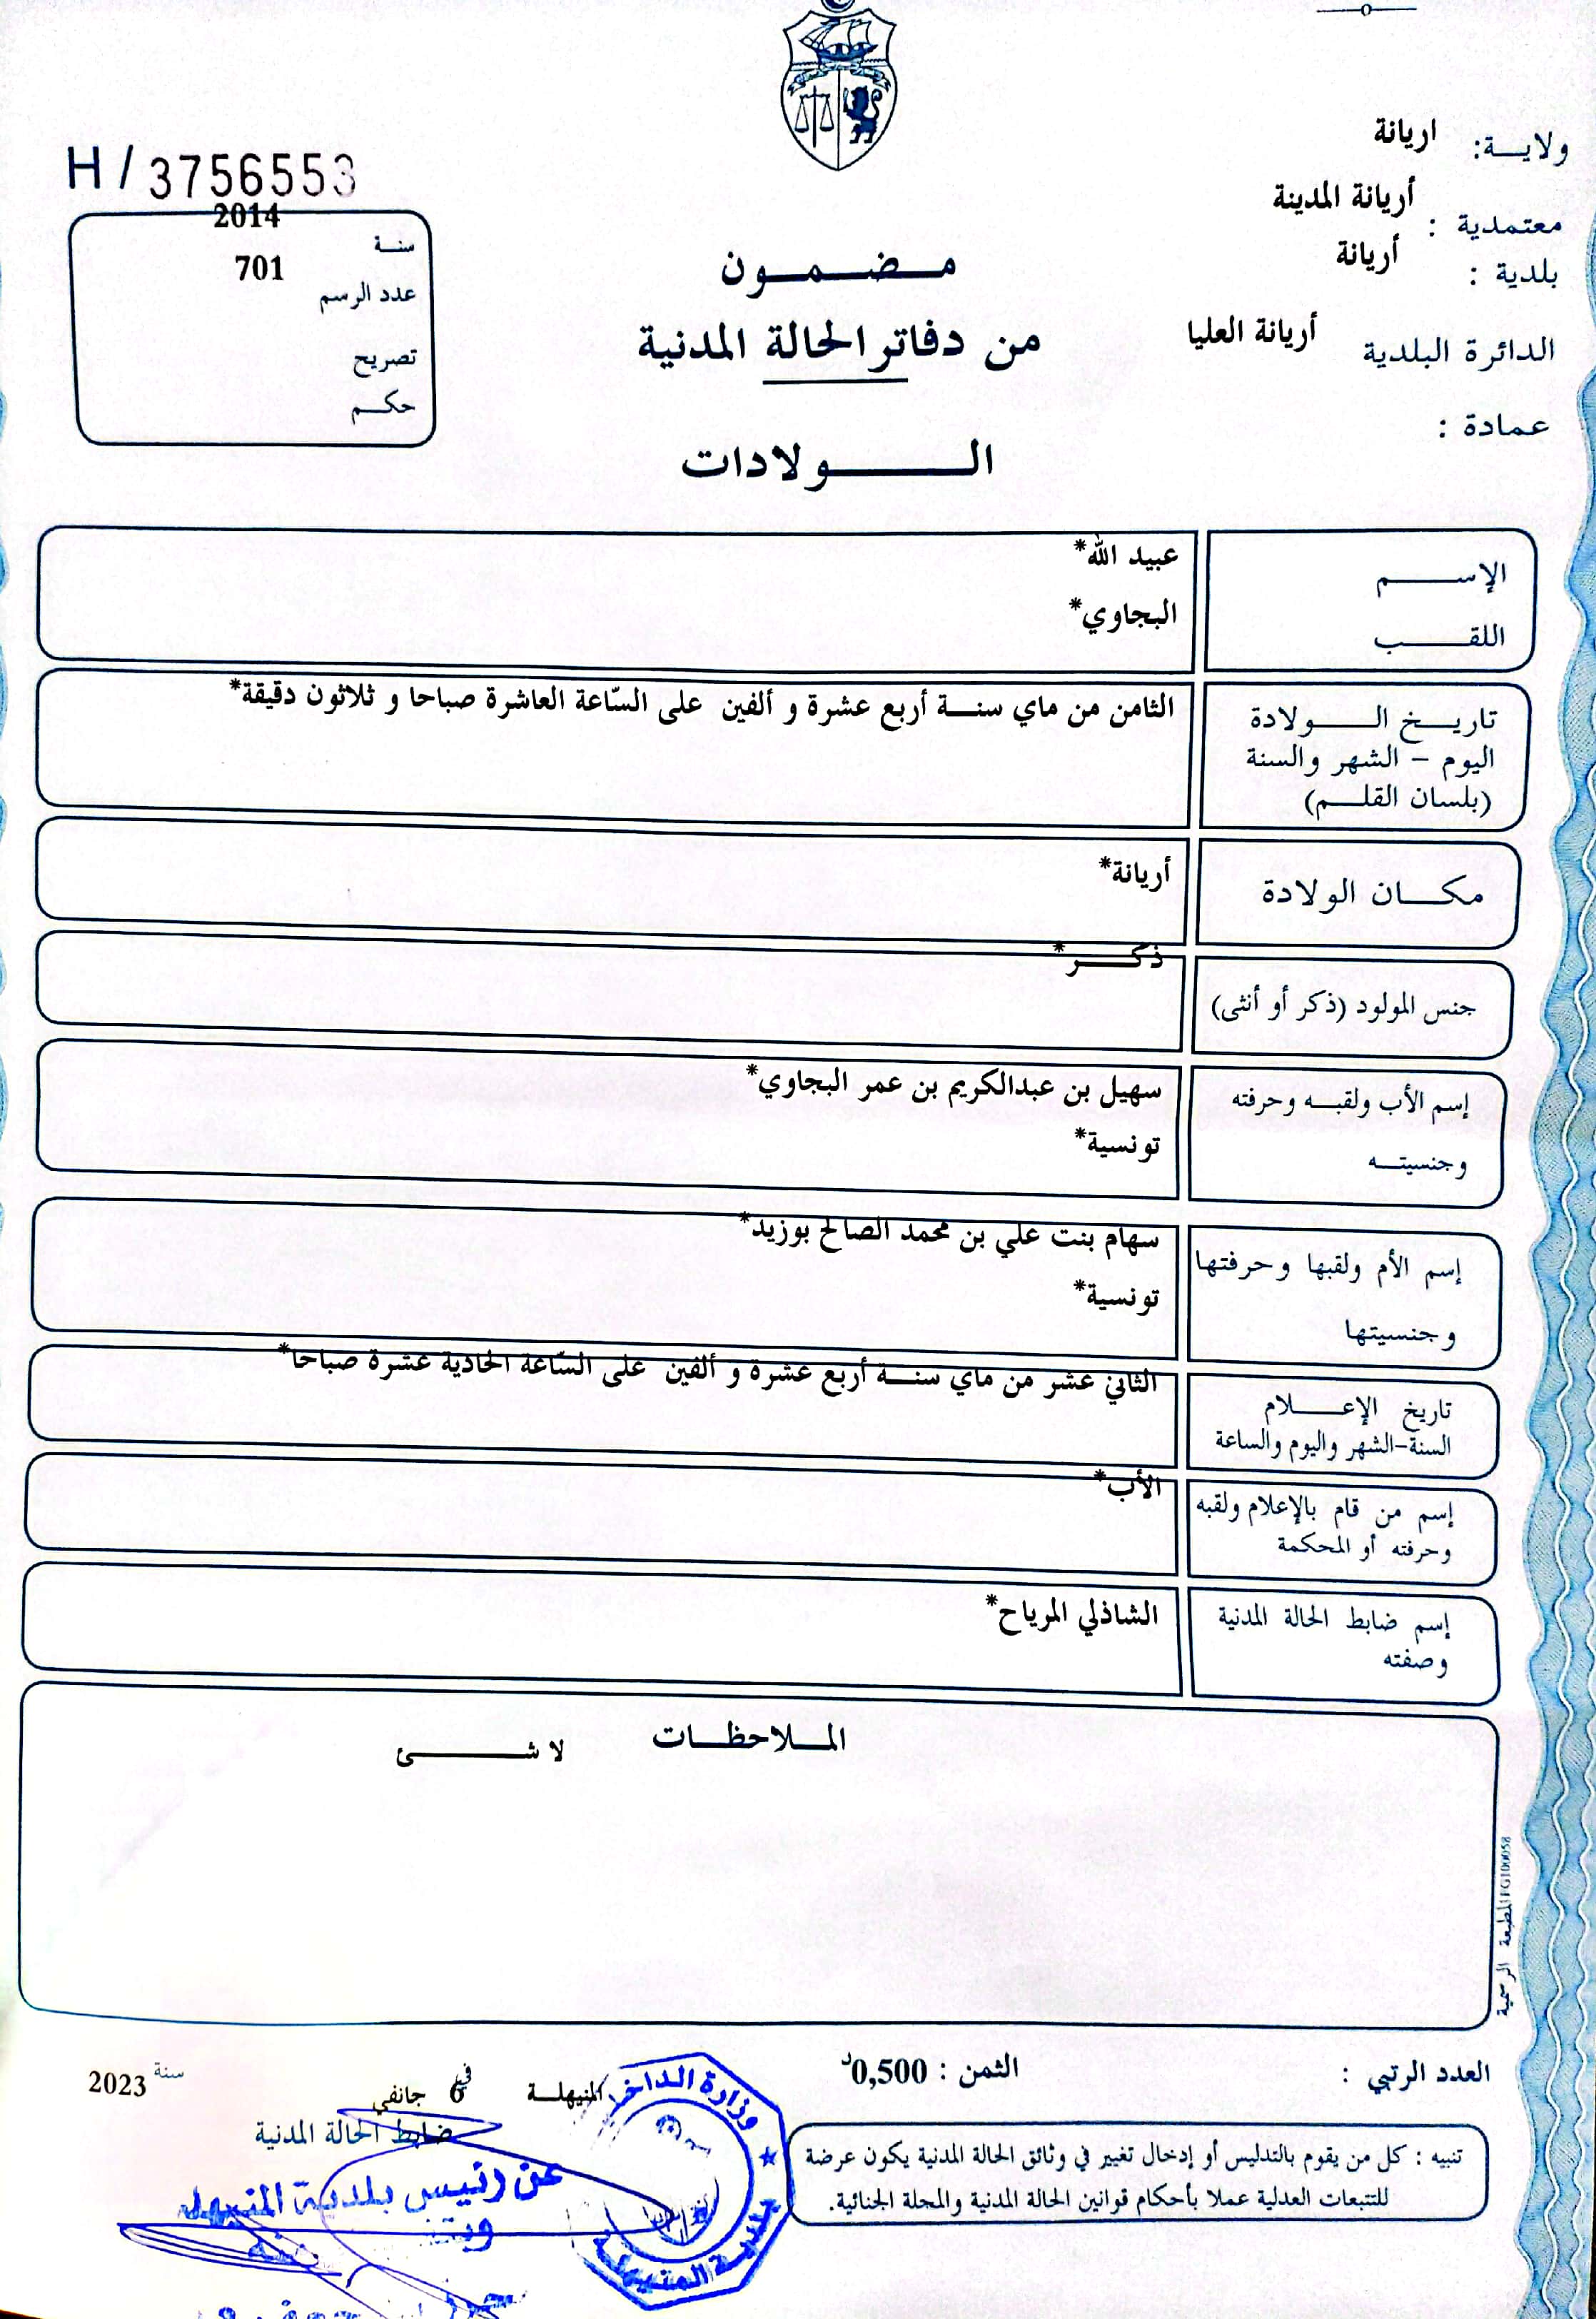 ولايــة: اريانة
معتمدية : أريانة المدينة
بلدية : أريانة
الدائرة البلدية أريانة العليا
عمادة :
H / 3756553
2014
سنـة
701
عدد الرسم
تصريح
حكـم
مـضـمـون
من دفاتر الحالة المدنية
الــولادات
الإســم عبيد الله*
اللقــب البجاوي*
تاريـخ الــولادة الثامن من ماي سنـة أربع عشرة و ألفين على السّاعة العاشرة صباحا و ثلاثون دقيقة*
اليوم – الشهر والسنة
(بلسان القلـم)
مكـان الولادة أريانة*
جنس المولود (ذكر أو أنثى) ذكـر*
إسم الأب ولقبـه وحرفته سهيل بن عبدالكريم بن عمر البجاوي*
وجنسيتـه تونسية*
إسم الأم ولقبها وحرفتها سهام بنت علي بن محمد الصالح بوزيد*
وجنسيتها تونسية*
تاريخ الإعـلام الثاني عشر من ماي سنـة أربع عشرة و ألفين على السّاعة الحادية عشرة صباحا*
السنة-الشهر واليوم والساعة
إسم من قام بالإعلام ولقبه الأب*
وحرفته أو المحكمة
إسم ضابط الحالة المدنية الشاذلي المرياح*
وصفته
المـلاحظـات
لا شـئ
المطبعة الرسمية FG100058
العدد الرتبي :
الثمن : 0,500د
المنيهلـة في 6 جانفي سنة 2023
ضابط الحالة المدنية
عن رئيس بلدية المنيهلة
وزارة الداخلية
بلدية المنيهلة
تنبيه : كل من يقوم بالتدليس أو إدخال تغيير في وثائق الحالة المدنية يكون عرضة
للتتبعات العدلية عملا بأحكام قوانين الحالة المدنية والمجلة الجنائية.